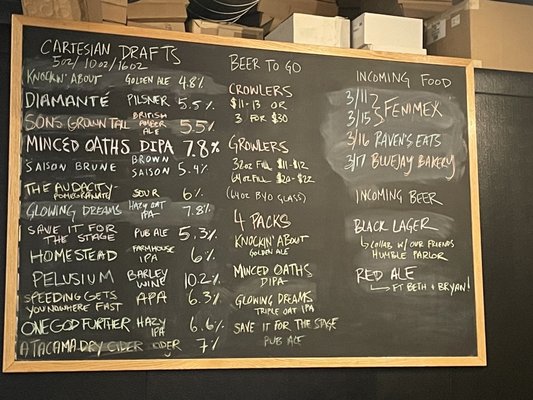 CARTESIAN DRAFTS
5oz/10oz/16oz
KNOCKIN' ABOUT GOLDEN ALE 4.8%
DIAMANTÉ PILSNER 5.5%
SONS GROWN TALL BRITISH AMBER ALE 5.5%
MINCED OATHS DIPA 7.8%
SAISON BRUNE BROWN SAISON 5.4%
THE AUDACITY-POMEGRANATE SOUR 6%
GLOWING DREAMS HAZY OAT IPA 7.8%
SAVE IT FOR THE STAGE PUB ALE 5.3%
HOMESTEAD FARMHOUSE IPA 6%
PELUSIUM BARLEY WINE 10.2%
SPEEDING GETS YOU NOWHERE FAST APA 6.3%
ONE GOD FURTHER HAZY IPA 6.6%
ATACAMA DRY CIDER CIDER 7%
BEER TO GO
CROWLERS
$11-13 OR
3 FOR $30
GROWLERS
32oz FILL $11-$12
64oz FILL $20-$22
(64oz BYO GLASS)
4 PACKS
KNOCKIN' ABOUT
GOLDEN ALE
MINCED OATHS
DIPA
GLOWING DREAMS
TRIPLE OAT IPA
SAVE IT FOR THE STAGE
PUB ALE
INCOMING FOOD
3/11
3/15 FENIMEX
3/16 RAVEN'S EATS
3/17 BLUEJAY BAKERY
INCOMING BEER
BLACK LAGER
COLLAB W/ OUR FRIENDS
HUMBLE PARLOR
RED ALE
FT BETH + BRYAN!